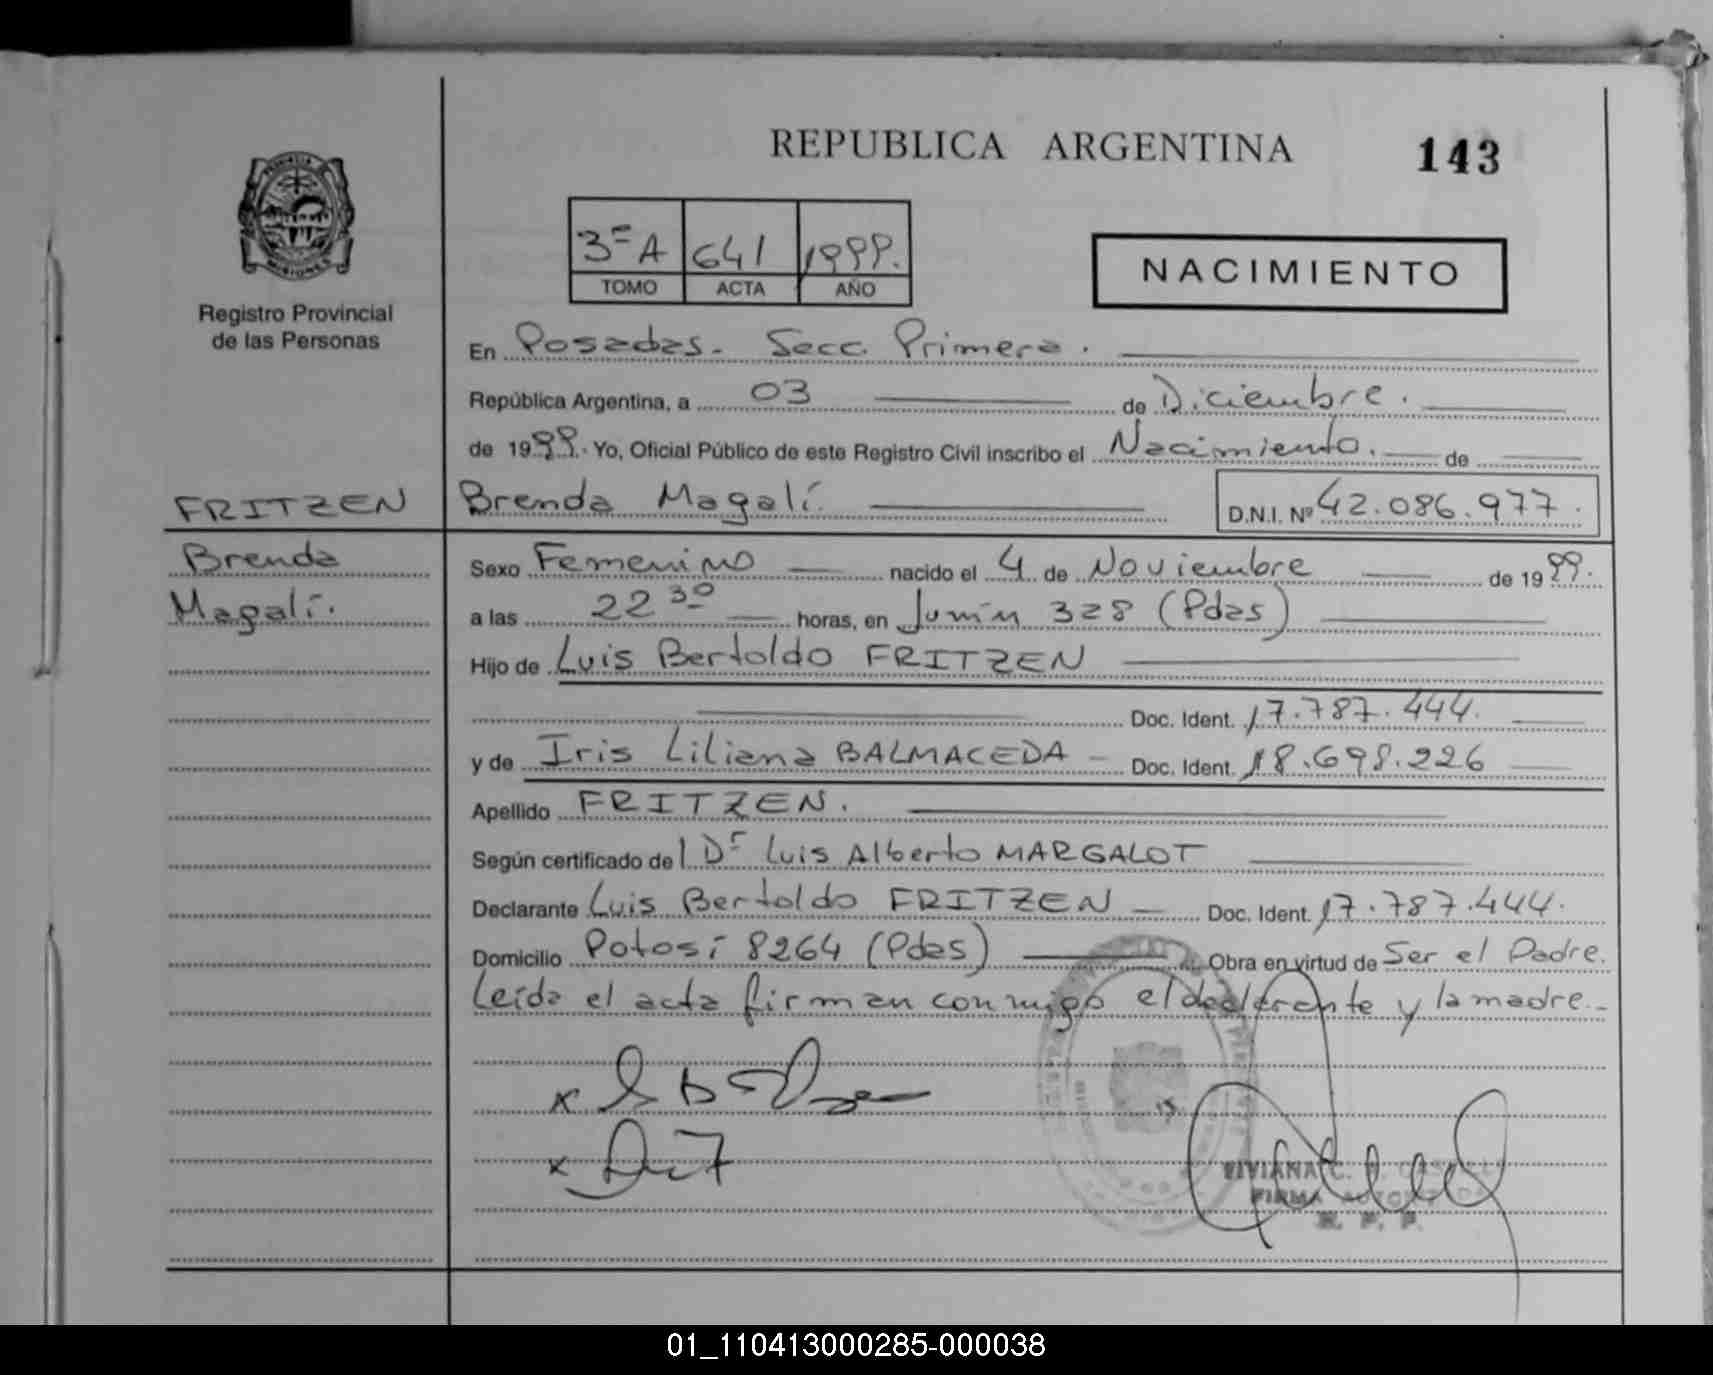 REPUBLICA ARGENTINA 143
PROVINCIA
MISIONES
Registro Provincial
de las Personas
3ª A 641 1999.
TOMO ACTA AÑO
NACIMIENTO
En Posadas. Secc. Primera.
República Argentina, a 03 de Diciembre.
de 1999. Yo, Oficial Público de este Registro Civil inscribo el Nacimiento. de
FRITZEN Brenda Magalí. D.N.I. Nº 42.086.977.
Brenda Sexo Femenino nacido el 4 de Noviembre de 1999.
Magalí. a las 22 30 horas, en Junín 328 (Pdas)
Hijo de Luis Bertoldo FRITZEN
Doc. Ident. 17.787.444.
y de Iris Liliana BALMACEDA Doc. Ident. 18.698.226
Apellido FRITZEN.
Según certificado del Dr Luis Alberto MARGALOT
Declarante Luis Bertoldo FRITZEN Doc. Ident. 17.787.444.
Domicilio Potosí 8264 (Pdas) Obra en virtud de Ser el Padre.
Leída el acta firman conmigo el declarante y la madre.
x
x
VIVIANA C.
FIRMA AUTORIZADA
R. P. P.
01_110413000285-000038